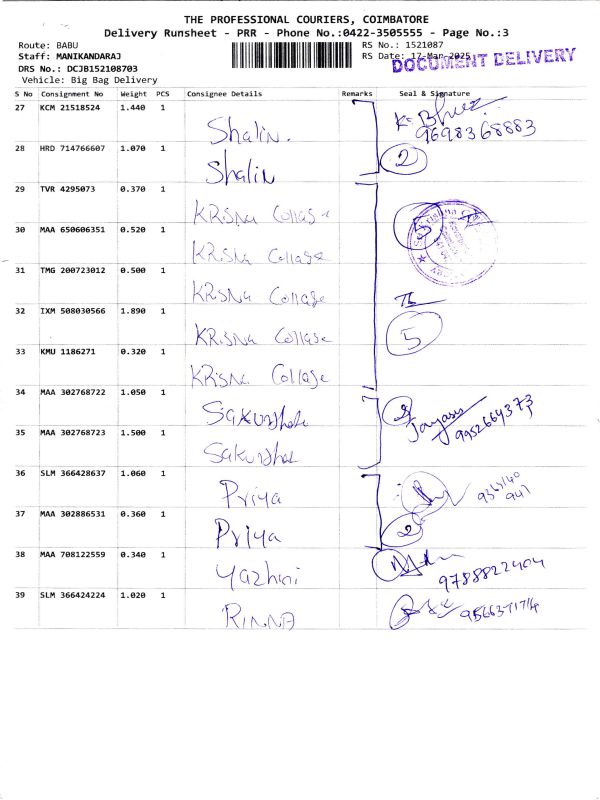 THE PROFESSIONAL COURIERS, COIMBATORE
Delivery Runsheet - PRR - Phone No.:0422-3505555 - Page No.:3
Route: BABU RS No.: 1521087
Staff: MANIKANDARAJ RS Date: 17-Mar-2025
DOCUMENT DELIVERY
DRS No.: DCJB152108703
Vehicle: Big Bag Delivery
S No Consignment No Weight PCS Consignee Details Remarks Seal & Signature
27 KCM 21518524 1.440 1 Shalin. 9698368883
28 HRD 714766607 1.070 1 Shalin 2
29 TVR 4295073 0.370 1 KRISNA Collage 5
30 MAA 650606351 0.520 1 KRISNA Collage
31 TMG 200723012 0.500 1 KRISNA Collage
32 IXM 508030566 1.890 1 KRISNA Collage 5
33 KMU 1186271 0.320 1 KRISNA Collage
34 MAA 302768722 1.050 1 2 9952664373
35 MAA 302768723 1.500 1
36 SLM 366428637 1.060 1 Priya
37 MAA 302886531 0.360 1 Priya 2
38 MAA 708122559 0.340 1 Yazhini 9788822404
39 SLM 366424224 1.020 1 RINNA